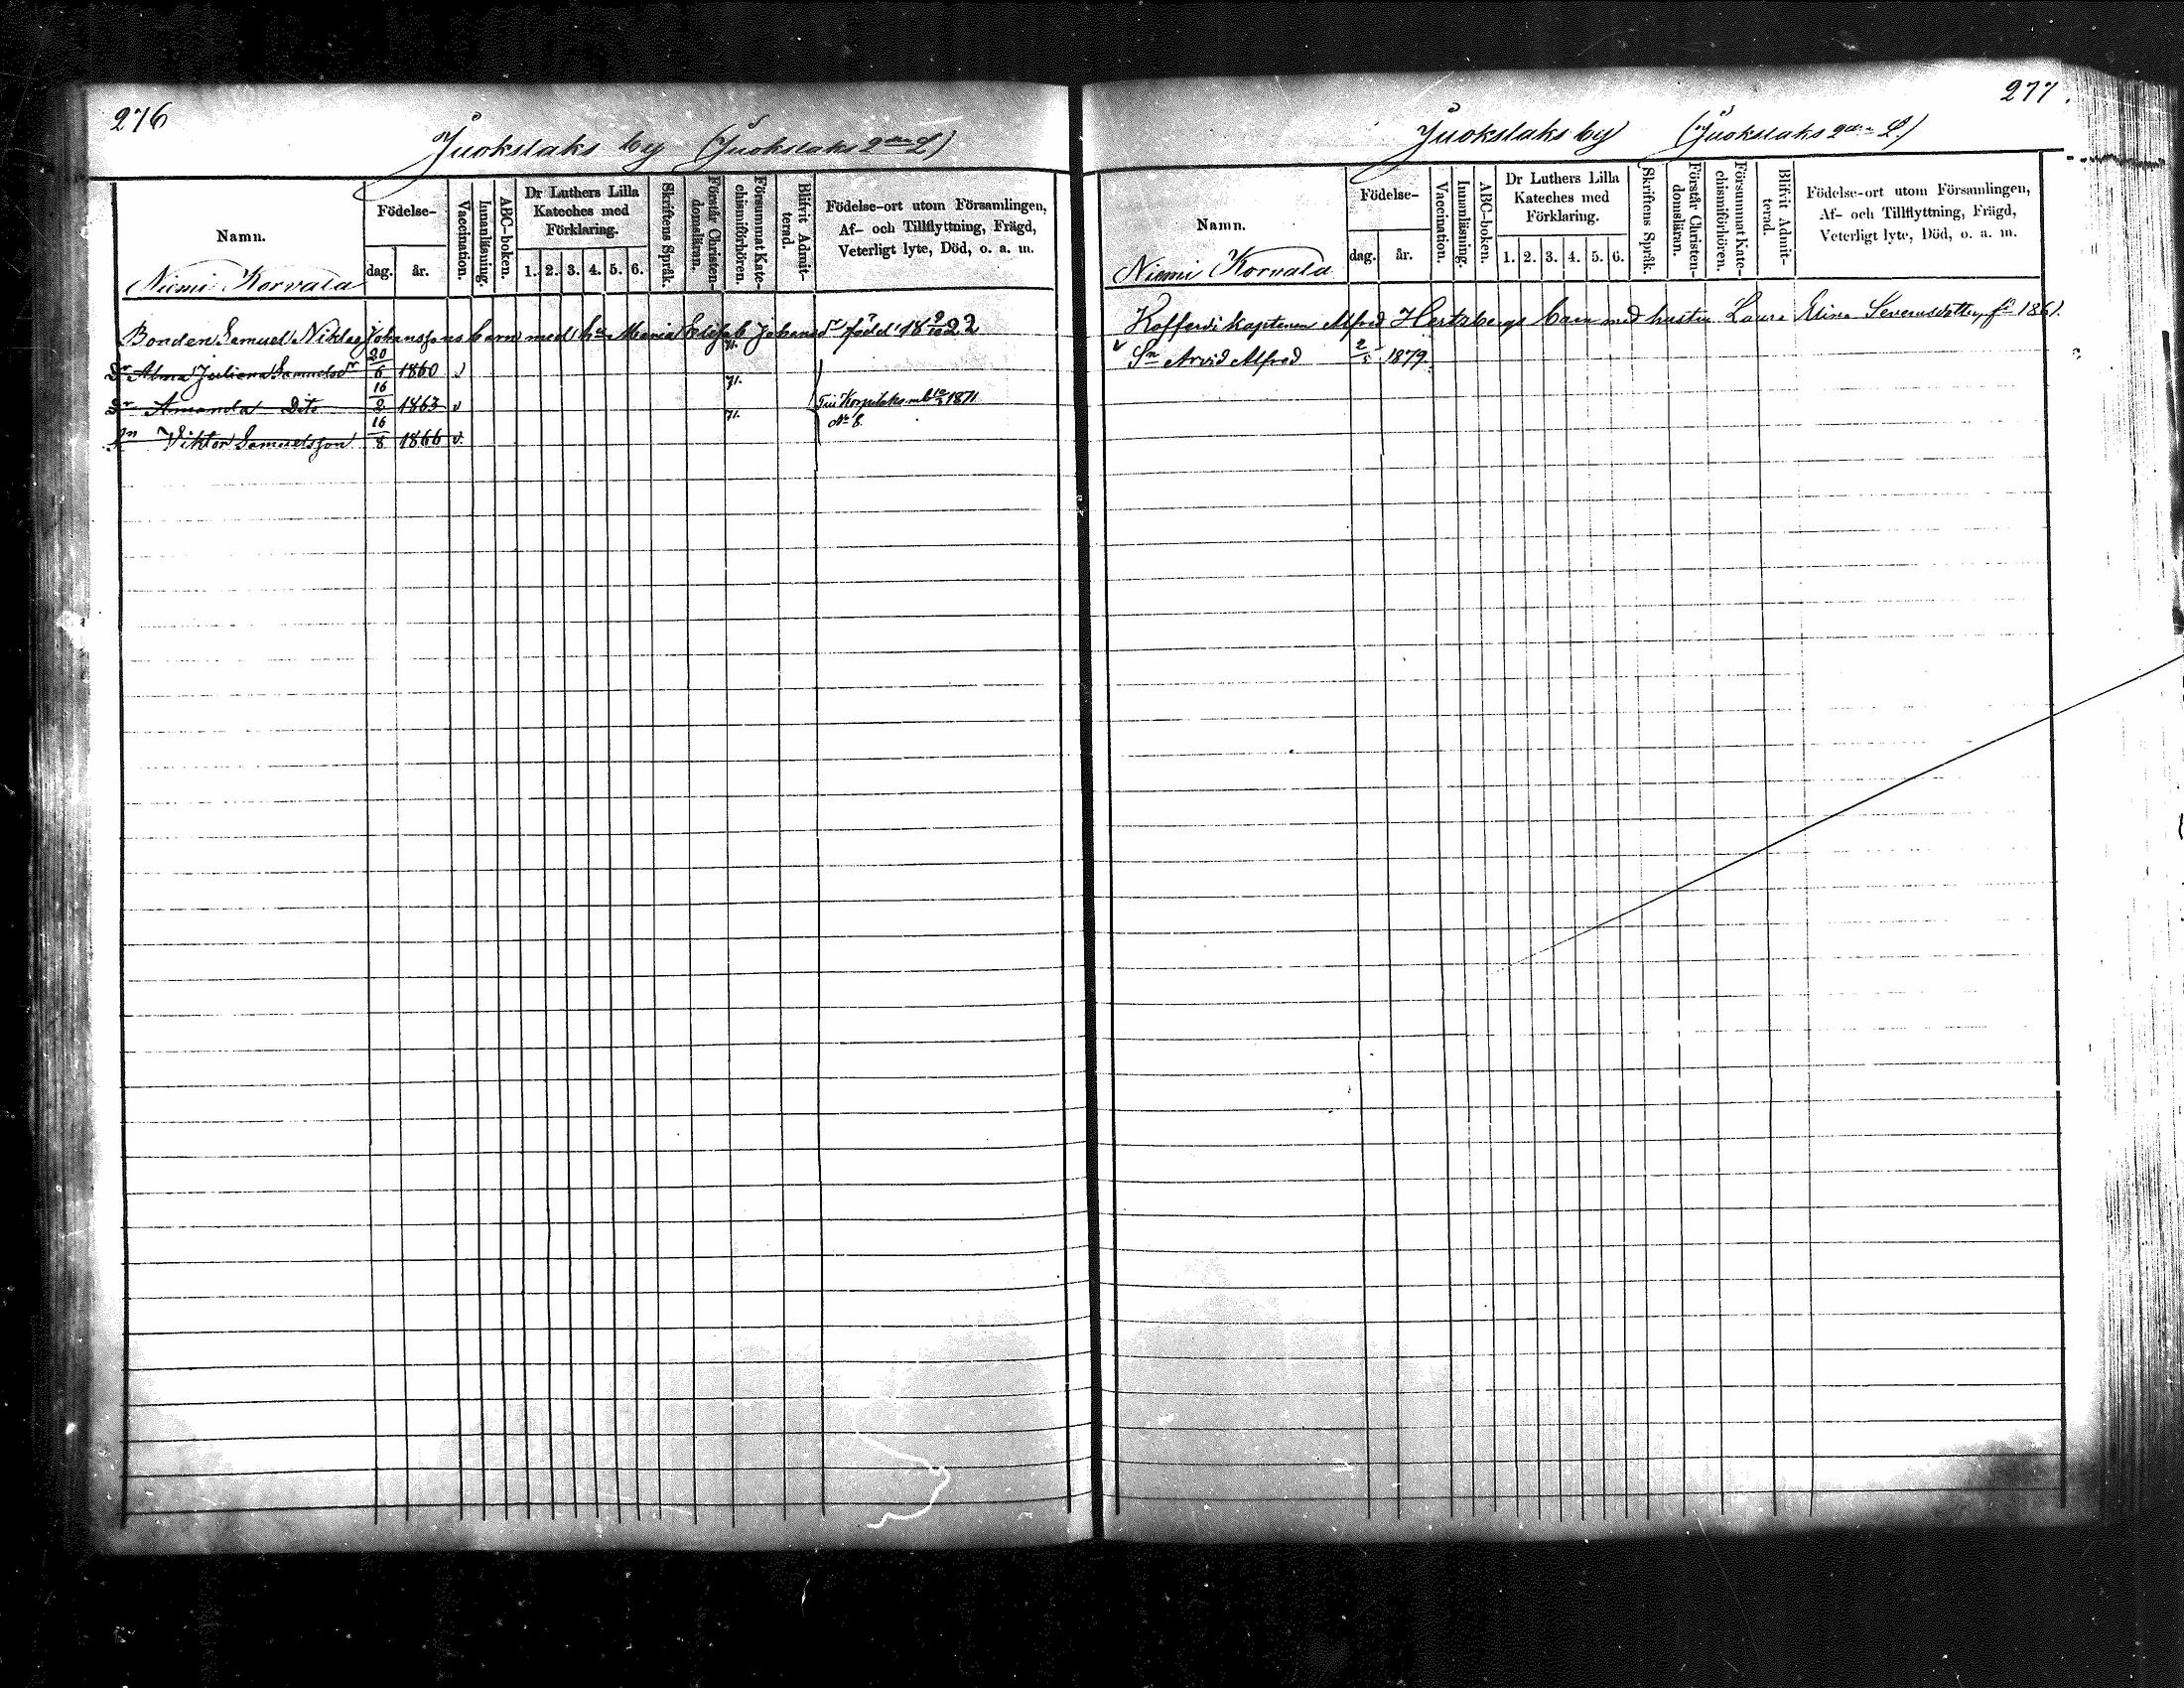 276
Juokslaks by (Juokslaks 2dra L)
Namn.
Födelse-
dag.
år.
Vaccination.
Innanläsning.
ABC-boken.
Dr Luthers Lilla
Kateches med
Förklaring.
1. 2. 3. 4. 5. 6.
Skriftens Språk.
Förstår Christen-
domsläran.
Försummat Kate-
chismiförhören.
Blifvit Admit-
terad.
Födelse-ort utom Församlingen,
Af- och Tillflyttning, Frägd,
Veterligt lyte, Död, o. a. m.
Niemi Korvala
Bonden Samuel Niklas Johanssons barn med hu Maria Elisab Johansdr född 18 9/10 22
Dr Alma Juliana Samuelsdr 20/6 1860 v 71.
Dr Amanda Dito 16/2 1863 v 71.
Till Korpilaks 1871
No 8.
Sn Viktor Samuelsson 16/8 1866 v. 71.
277.
Juokslaks by (Juokslaks 2dra L.)
Namn.
Födelse-
dag.
år.
Vaccination.
Innanläsning.
ABC-boken.
Dr Luthers Lilla
Kateches med
Förklaring.
1. 2. 3. 4. 5. 6.
Skriftens Språk.
Förstår Christen-
domsläran.
Försummat Kate-
chismiförhören.
Blifvit Admit-
terad.
Födelse-ort utom Församlingen,
Af- och Tillflyttning, Frägd,
Veterligt lyte, Död, o. a. m.
Niemi Korvala
Kofferdi kaptenen Alfred Hertzbergs barn med hustru Laura Elina Severusdotter, f 1861.
v Sn Arvid Alfred 2/5 1879.